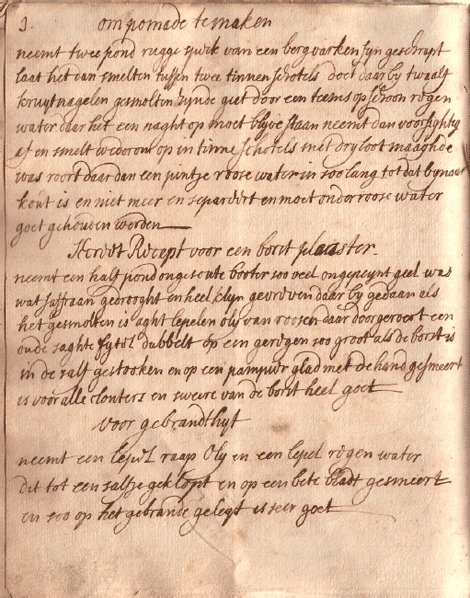 3. om pomade te maken
neemt twee pond rugge speck van een bergvarken fyn geschrapt
laat het dan smelten tussen twee tinnen schotels doet daar by twaalf
kruytnagelen gesmolten zynde giet door een teems op schoon regen
water daer het een naght op moet blyve staan neemt dan voorsightig
af en smelt wederom op in tinne schotels met dry loot maaghde
was roert daar dan een pintje roose water in soo lang tot dat bynaer
kout is en niet meer en separeert en moet onder roose water
goet gehouden werden
Recept voor een borst plaaster
neemt een half pond ongesoute booter soo veel geel was
wat saffraan gedrooght en heel klyn gevreven daar by gedaan als
het gesmolten is aght lepelen oly van roosen daar door geroert een
oude saghte dubbelt op een geregen soo groot als de borst is
in de salf gestooken en op een pampier glad met de hand gesmeert
is voor alle clonters en sweere van de borst heel goet
voor gebrandthyt
neemt een lepel raap oly en een lepel regen water
dit tot een salfje geklopt en op een bete bladt gesmeert
en soo op het gebrande geleyt is seer goet